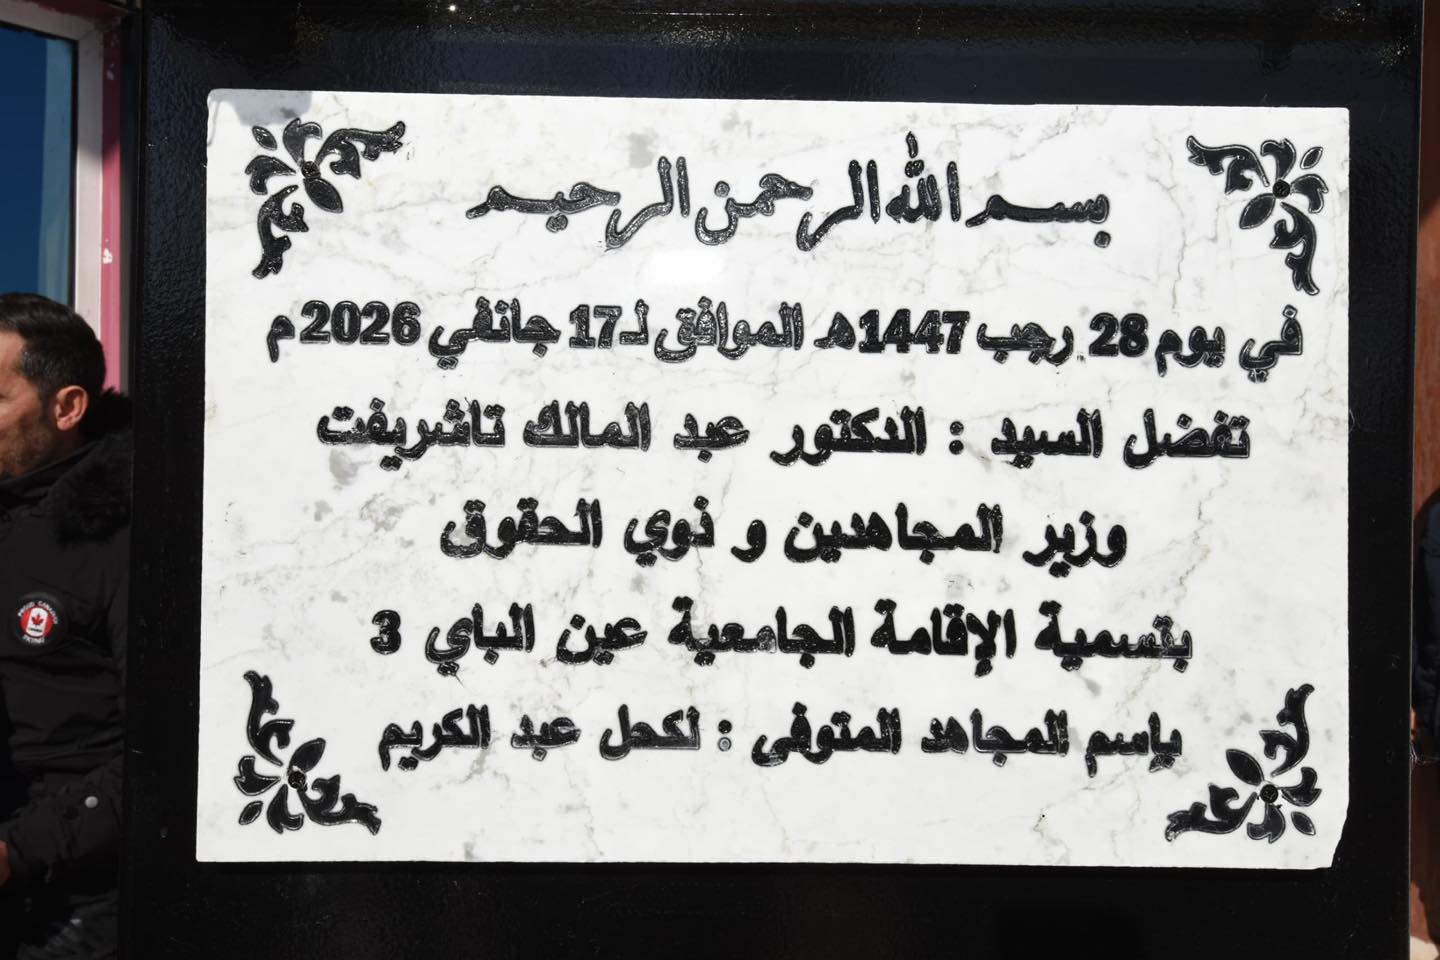 بسم الله الرحمن الرحيم
في يوم 28 رجب 1447هـ الموافق لـ 17 جانفي 2026م
تفضل السيد : الدكتور عبد المالك تاشريفت
وزير المجاهدين و ذوي الحقوق
بتسمية الإقامة الجامعية عين الباي 3
بإسم المجاهد المتوفى : لكحل عبد الكريم